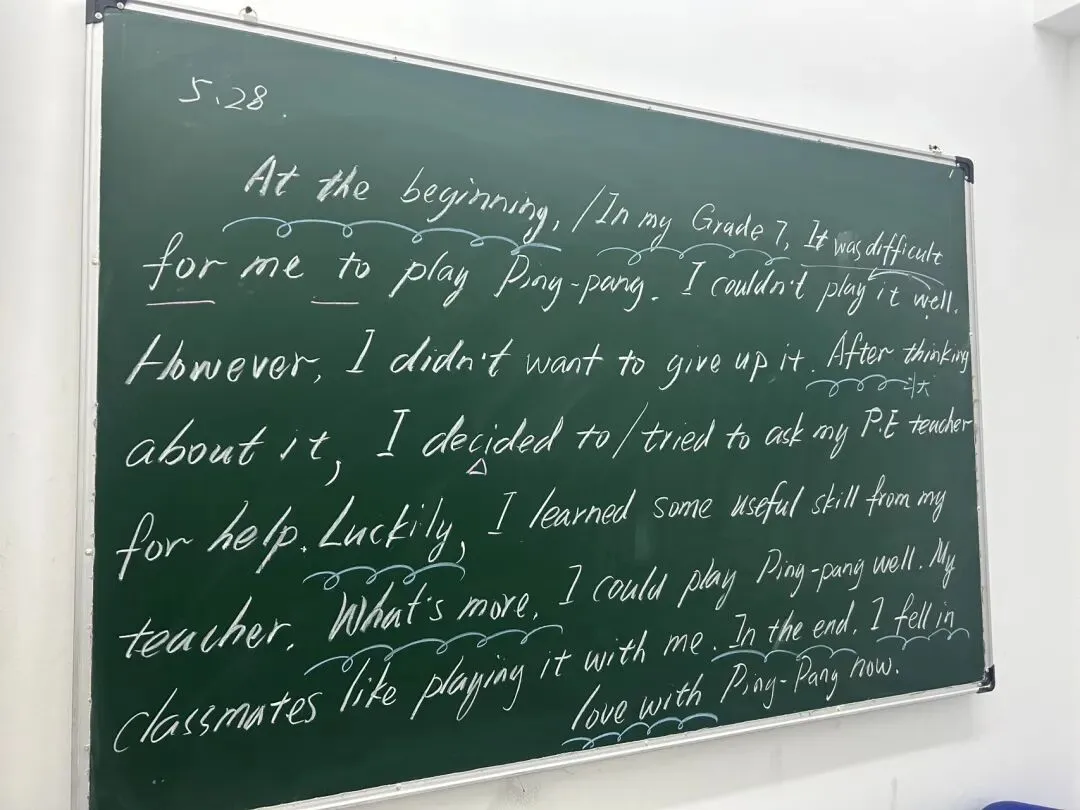 5.28.
At the beginning, / In my Grade 7, It was difficult
for me to play Ping-pang. I couldn't play it well.
However, I didn't want to give up it. After thinking
about it, I decided to / tried to ask my P.E teacher
for help. Luckily, I learned some useful skill from my
teacher. What's more, I could play Ping-pang well. My
classmates like playing it with me. In the end, I fell in
love with Ping-Pang now.